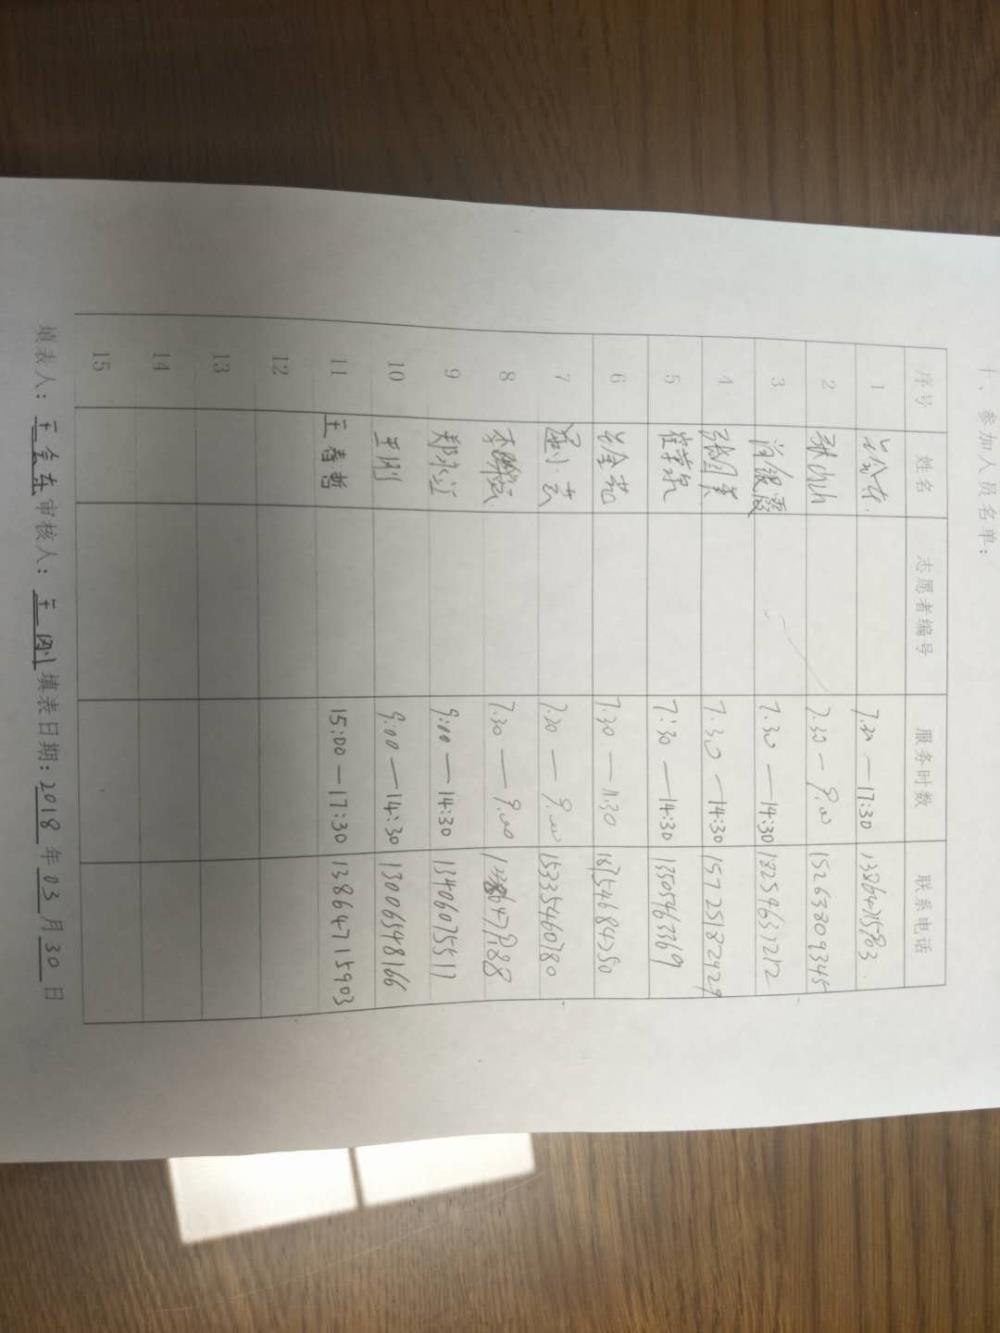 十、参加人员名单：
序号 姓名 志愿者编号 服务时数 联系电话
1 7:30—17:30
2 7:30—9:00 15263809345
3 7:30—14:30 18254637212
4 7:30—14:30 15725182929
5 7:30—14:30 13505463369
6 7:30—11:30 18754684550
7 7:30—9:00 15335460780
8 7:30—9:00
9 郑永江 9:00—14:30 13406075511
10 王刚 9:00—14:30 13006548166
11 王春哲 15:00—17:30 13864715903
12
13
14
15
填表人：王会东 审核人：王刚 填表日期：2018年03月30日